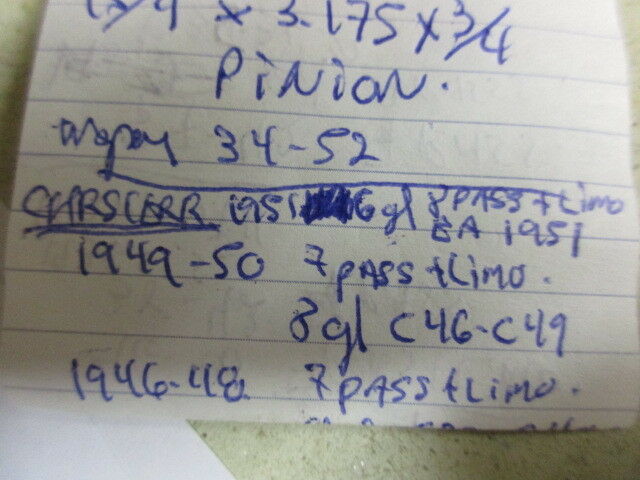 x 3.175 x 3/4
PINION.
34-52
1951 6 gl 8 PASS + Limo
EA 1951
1949-50 7 PASS + Limo.
8 gl C46-C49
1946-48 7 PASS + Limo.